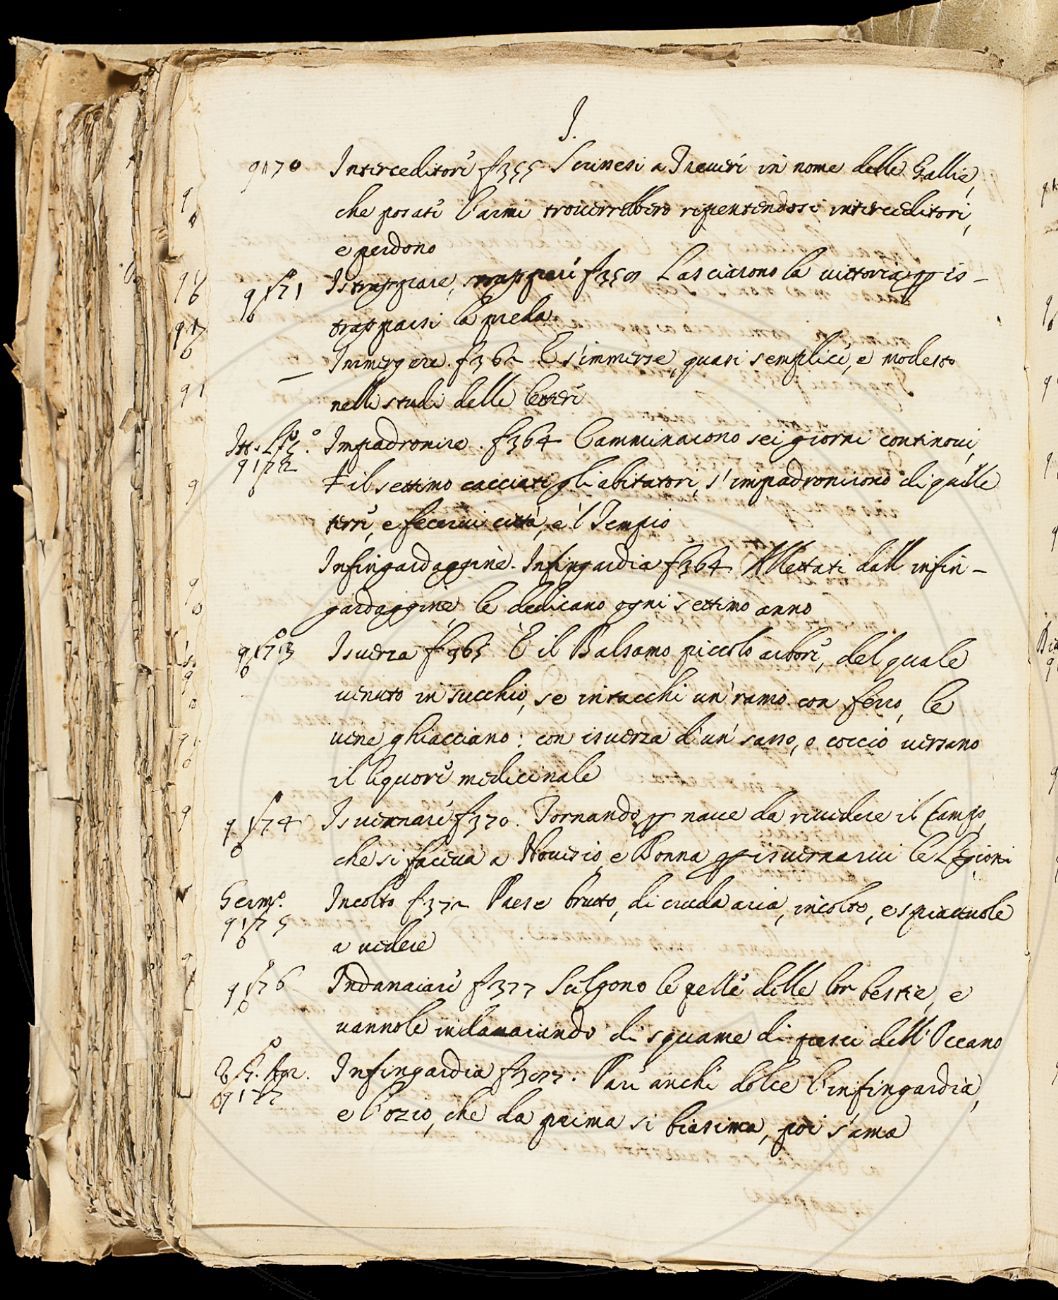 I.
9170 Interceditori f 355 Scrivesi a Treviri in nome delle Gallie,
che posati l'armi troverrebbero ripentendosi interceditori,
e perdono
9171 Istrappare, f 359 Lasciarono la vittoria is-
trapparsi la preda.
— Immergere f 362 E s'immerse, quasi semplice, e modesto
nelli studi delle lettere
Impadronire. f 364 Camminarono sei giorni continovi,
9172 il settimo cacciati gli abitatori, s'impadronirono di quelle
terre, e fecervi città, e 'l Tempio
Infingardaggine. Infingardia f 364 Allettati dall' infin-
gardaggine le dedicano ogni settimo anno
9173 Isverza f 365 È il Balsamo piccolo arbore, del quale
venuto in succhio, se intacchi un' ramo con ferro, le
vene ghiacciano: con isverza d'un' sasso, o coccio versano
il liquore medicinale
9174 Isvernare f 370. Tornando nave da rivedere il Campo,
che si faceva a Noversio e Bonna isvernarvi le Legioni
Germ.
9175 Incolto f 372 Paese brutto, di cruda aria, incolto, e spiacevole
a vedere
9176 Indanaiare f 377 Scelgono le pelle delle lor bestie, e
vannole indanaiando di squame di pesci dell' Oceano
Agr. Infingardia f 397. Pare anche dolce l'infingardia,
9177 e l'ozio, che da prima si biasima, poi s'ama